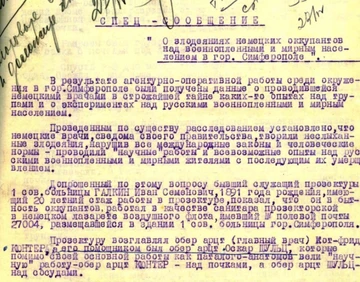 СПЕЦ-СООБЩЕНИЕ.
" О злодеяниях немецких оккупантов
над военнопленными и мирным насе-
лением в гор. Симферополе "
В результате агентурно-оперативной работы среди окруже-
ния в гор. Симферополе были получены данные о проводившейся
немецкими врачами в строжайшей тайне каких-то опытах над тру-
пами и о экспериментах над русскими военнопленными и мирным
населением.
Проведенным по существу расследованием установлено, что
немецкие врачи, с ведома своего правительства, творили неслыхан-
ные злодеяния, нарушив все международные законы и человеческие
нормы - проводили "научные работы и всевозможные опыты над рус-
скими военнопленными и мирными жителями с последующим их умерщ-
влением.
Допрошенный по этому вопросу бывший служащий прозектуры
1 сов. больницы ГАЛКИН Иван Семенович, 1891 года рождения, имею-
щий 20 летний стаж работы в прозектуре, показал, что он в бы-
тность оккупантов, работал в качестве санитара прозекторской
в немецком лазарете воздушного флота, имевший № полевой почты
27004, размещавшейся в здании 1 сов. больницы гор. Симферополя.
Прозектуру возглавлял обер арцт (главный врач) Кот-фрид
КОНТЕР, а его помощником был обер арцт Оскар ШУЛЬЦ, которые
помимо своей основной работы как паталого-анатомов вели "науч-
ную" работу-обер арцт КОНТЕР - над почками, а обер арцт ШУЛЬЦ
над сосудами.